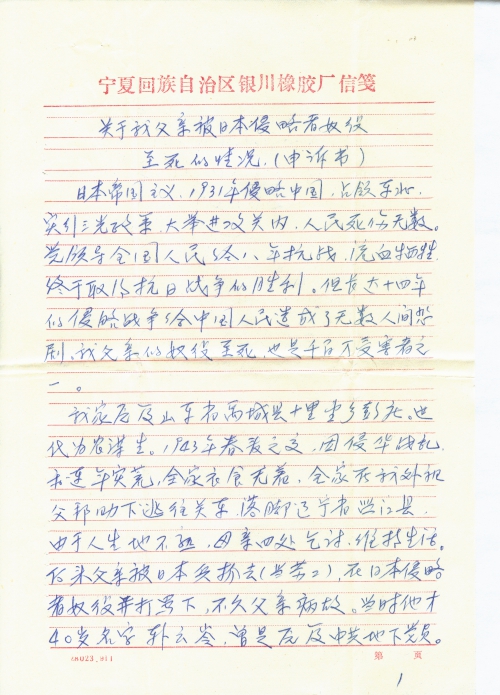 宁夏回族自治区银川橡胶厂信笺
关于我父亲被日本侵略者奴役
至死的情况.(申诉书)
日本帝国主义.1931年侵略中国.占领东北.
实行三光政策.大举进攻关内.人民死伤无数。
党领导全国人民经八年抗战.流血牺牲.
终于取得抗日战争的胜利。但长达十四年
的侵略战争给中国人民造成了无数人间悲
剧.我父亲的奴役至死.也是千百万受害者之
一。
我家居及山东省禹城县十里堂乡彭庄。世
代为农谋生。1943年春夏之交.因侵华战乱
和连年灾荒.全家衣食无着.全家在我外祖
父帮助下逃往关东.落脚辽宁省 县.
由于人生地不熟.母亲四处乞讨.维持生活.
父亲被日本兵抓去(当劳工).在日本侵略
者奴役并打骂下.不久父亲病故。当时他才
40岁名字 云岑.曾是居及中共地下党员。
第 页
1